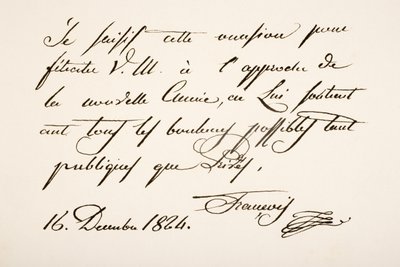 Je saisis cette occasion pour
féliciter V. M. à l'approche de
la nouvelle Année, en Lui souhait
ant tous les bonheurs possibles tant
publiques que Privés.
16. Decembre 1824.